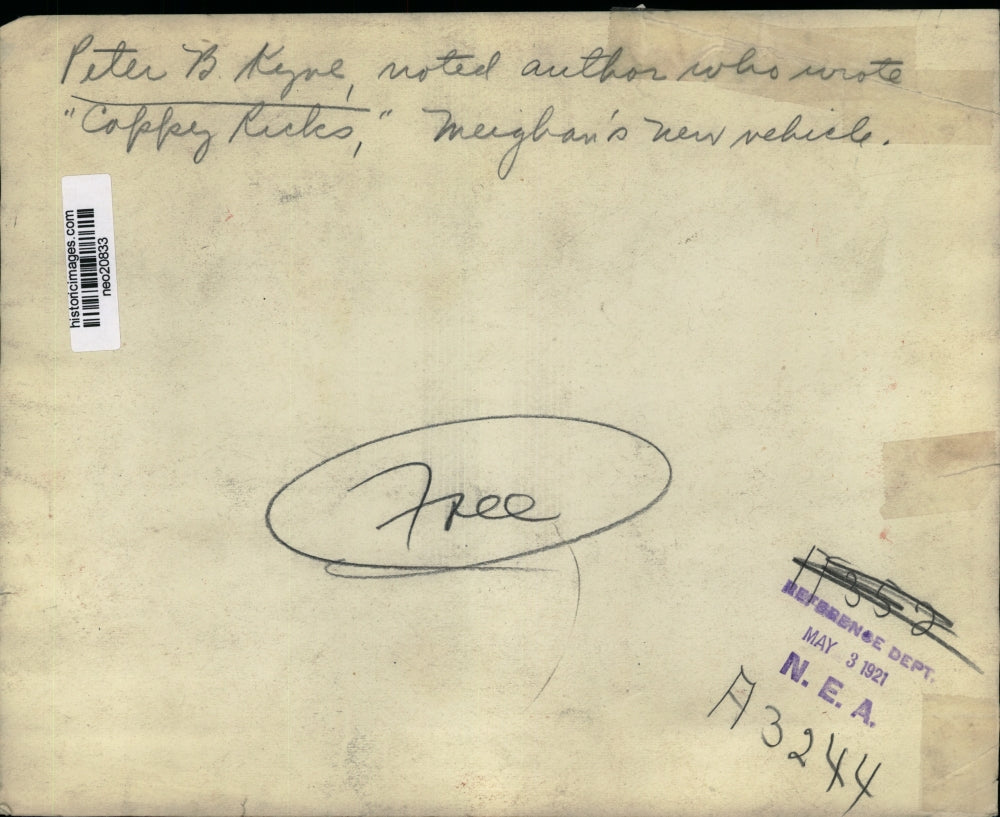 Peter B. Kyne, noted author who wrote
"Cappey Ricks," Meighan's new vehicle.
historicimages.com
neo20833
Free
17352
REFERENCE DEPT.
MAY 3 1921
N. E. A.
A3244